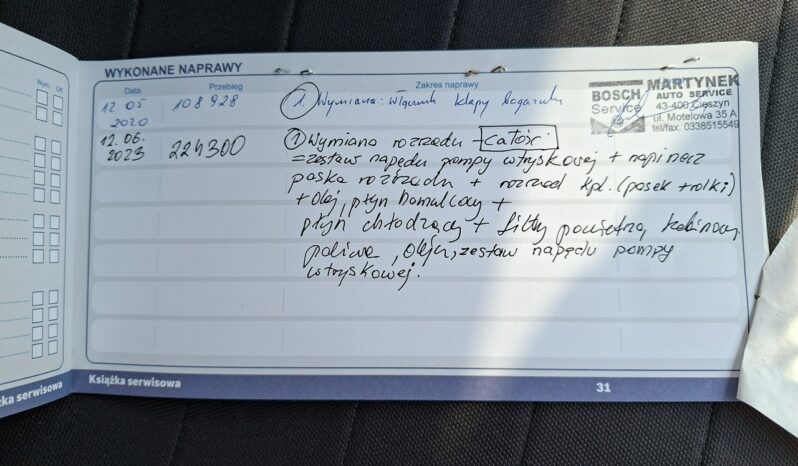 WYKONANE NAPRAWY
Data Przebieg Zakres naprawy
Wym. OK
12.05 2020 108 928 1. Wymiana: Włącznik klapy bagażnika
BOSCH Service
MARTYNEK
AUTO SERVICE
43-400 Cieszyn
ul. Motelowa 35 A
tel/fax. 0338515549
12.06. 2023 224300 1 Wymiana rozrządu - całość:
= zestaw napędu pompy wtryskowej + napinacz
paska rozrządu + rozrząd kpl. (pasek + rolki)
+ olej, płyn hamulcowy +
płyn chłodzący + filtry powietrza, kabinowy,
paliwa, oleju, zestaw napędu pompy
wtryskowej.
Książka serwisowa 31
żka serwisowa